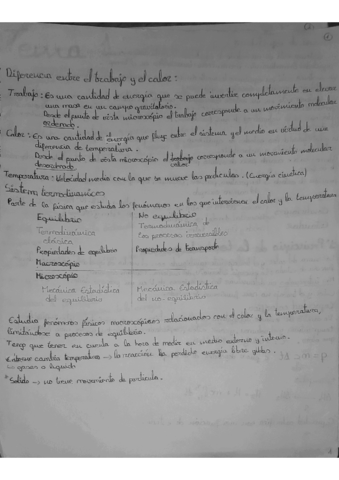 Diferencia entre el trabajo y el calor:
Trabajo: Es una cantidad de energía que se puede invertir completamente en elevar
una masa en un campo gravitatorio.
Desde el punto de vista microscópico el trabajo corresponde a un movimiento molecular
ordenado.
Calor: Es una cantidad de energía que fluye entre el sistema y el medio en virtud de una
diferencia de temperatura.
Desde el punto de vista microscópico el trabajo corresponde a un movimiento molecular
calor
desordenado.
Temperatura: Velocidad media con la que se mueven las partículas. (Energía cinética)
Sistema termodinámicos
Parte de la física que estudia los fenómenos en los que intervienen el calor y la temperatura
Equilibrio No equilibrio
Termodinámica Termodinámica de
clásica los procesos irreversibles
Propiedades de equilibrio Propiedades de transporte
Macroscópio
Microscópio
Mecánica Estadística Mecánica Estadística
del equilibrio del no equilibrio
Estudia fenómenos físicos macroscópicos relacionados con el calor y la temperatura,
limitándose a procesos de equilibrio.
Tengo que tener en cuenta a la hora de medir en medio externo y interno.
cambia temperatura → la reacción ha perdido energía libre
↳ gases a líquido
*Sólido → no tiene movimiento de partícula.